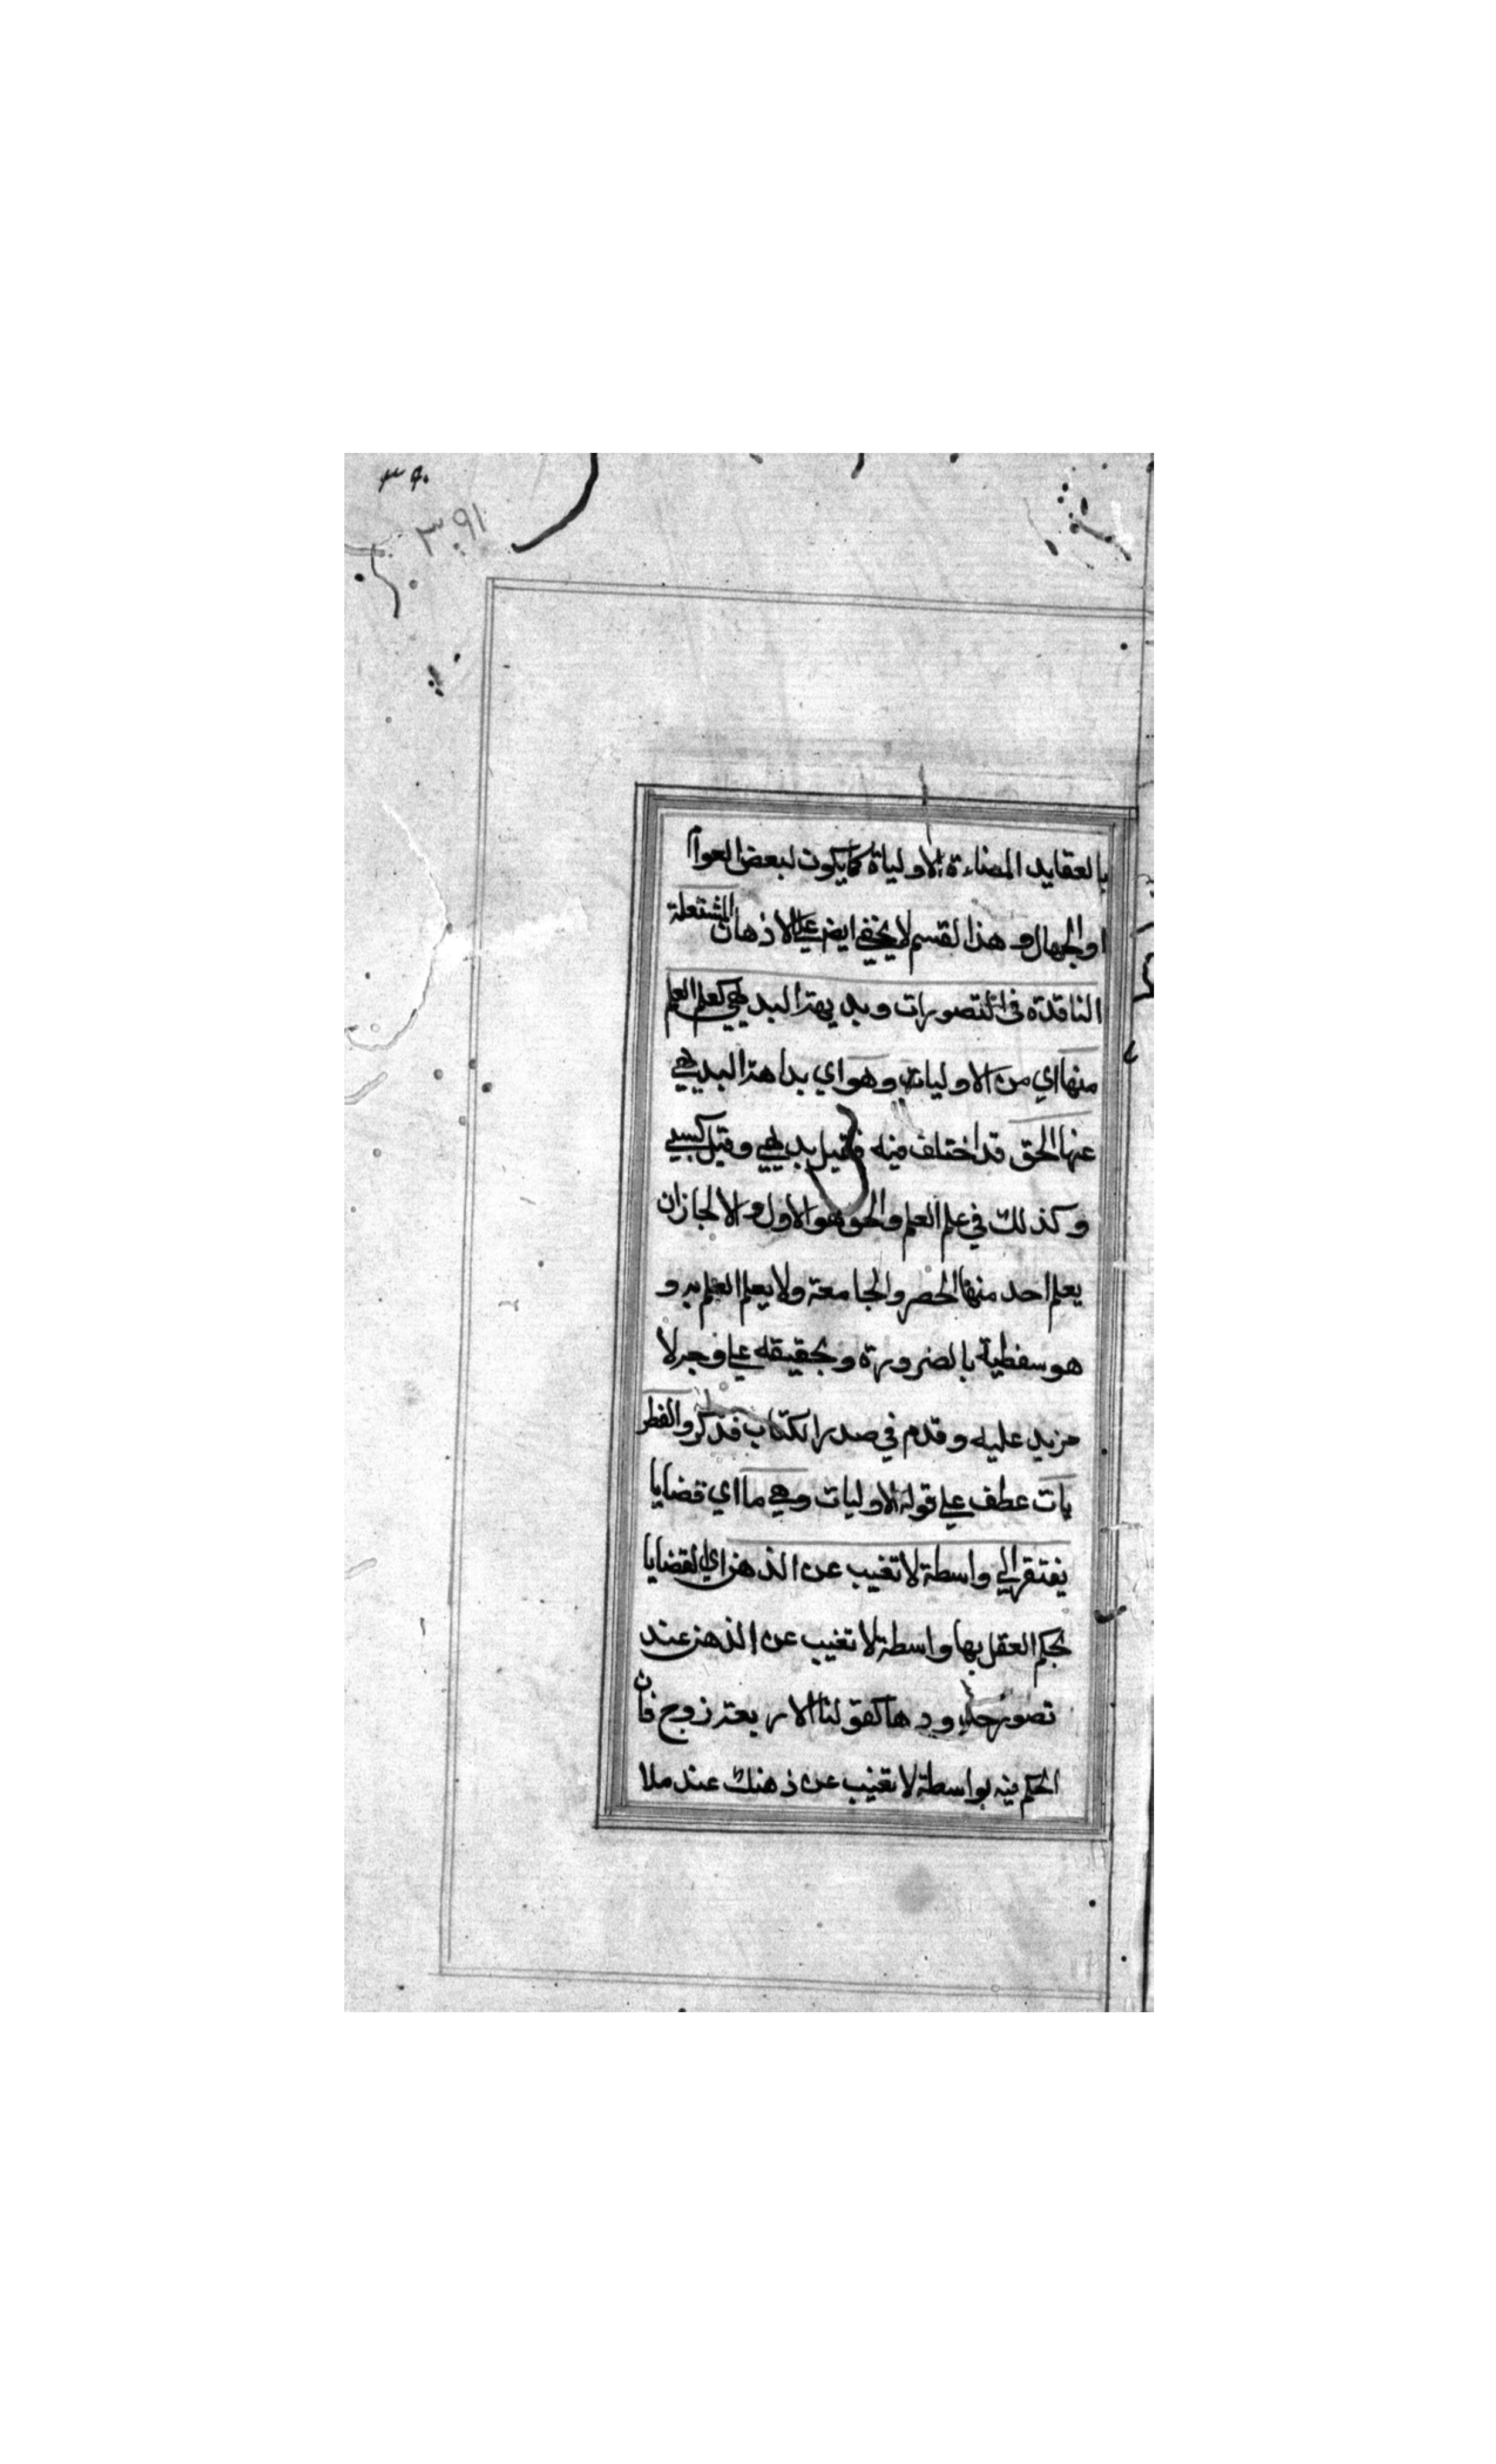 ٣٩٠
٣٩١
بالعقايد المضاءة للاولياة كما يكون لبعض العوام
او الجهال و هذا لقسم لا يخفي ايض علي الاذهان المشتعلة
الناقدة في التصورات و بديهة البديهي كعلم العلم
منها اي من الاوليات وهو اي بداهة البديهي
عنها الحق قد اختلف فيه فقيل بديهي وقيل كسبي
وكذلك في علم العلم والحق هو الاول والا لجاز ان
يعلم احد منها الحصر والجامعة ولا يعلم العلم به و
هو سفطية بالضرورة و تحقيقه علي وجه لا
مزيد عليه و قدم في صدر الكتاب فتذكر والفطر
يات عطف علي قوله الاوليات وهي ما اي قضايا
يفتقر الي واسطة لا تغيب عن الذهن اي القضايا
يحكم العقل بها واسطة لا تغيب عن الذهن عند
تصور حدودها كقولنا الاربعة زوج فان
الحكم فيه بواسطة لا تغيب عن ذهنك عند ملا